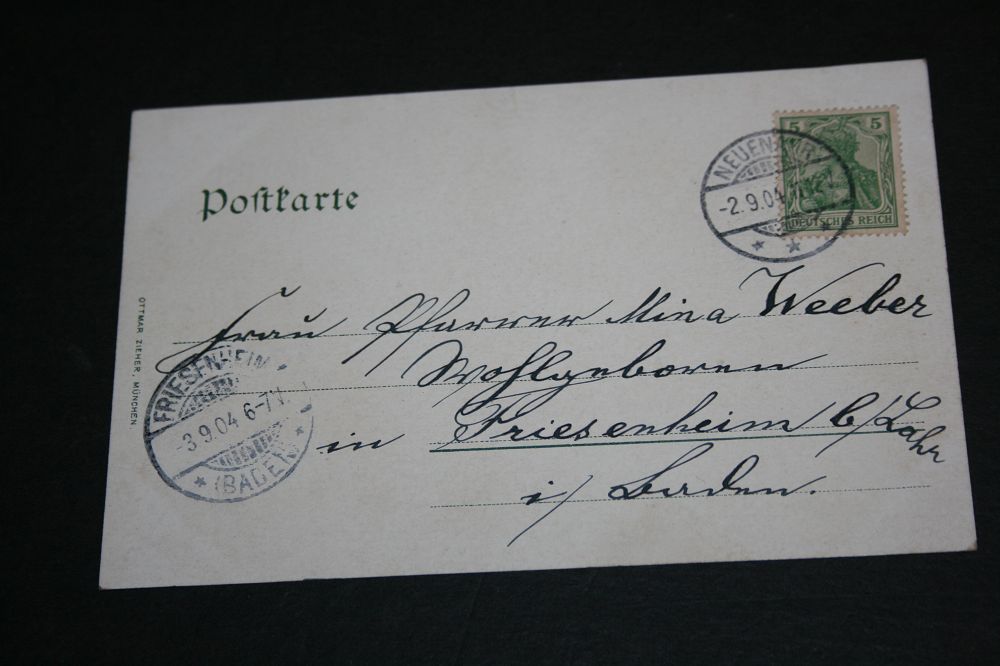 Postkarte
5 5
DEUTSCHES REICH
-2.9.04
OTTMAR ZIEHER, MÜNCHEN
Frau Pfarrer Mina Weeber
Wohlgeboren
in Friesenheim b/Lahr
i/ Baden.
FRIESENHEIM
-3.9.04 6-7
(BADEN)